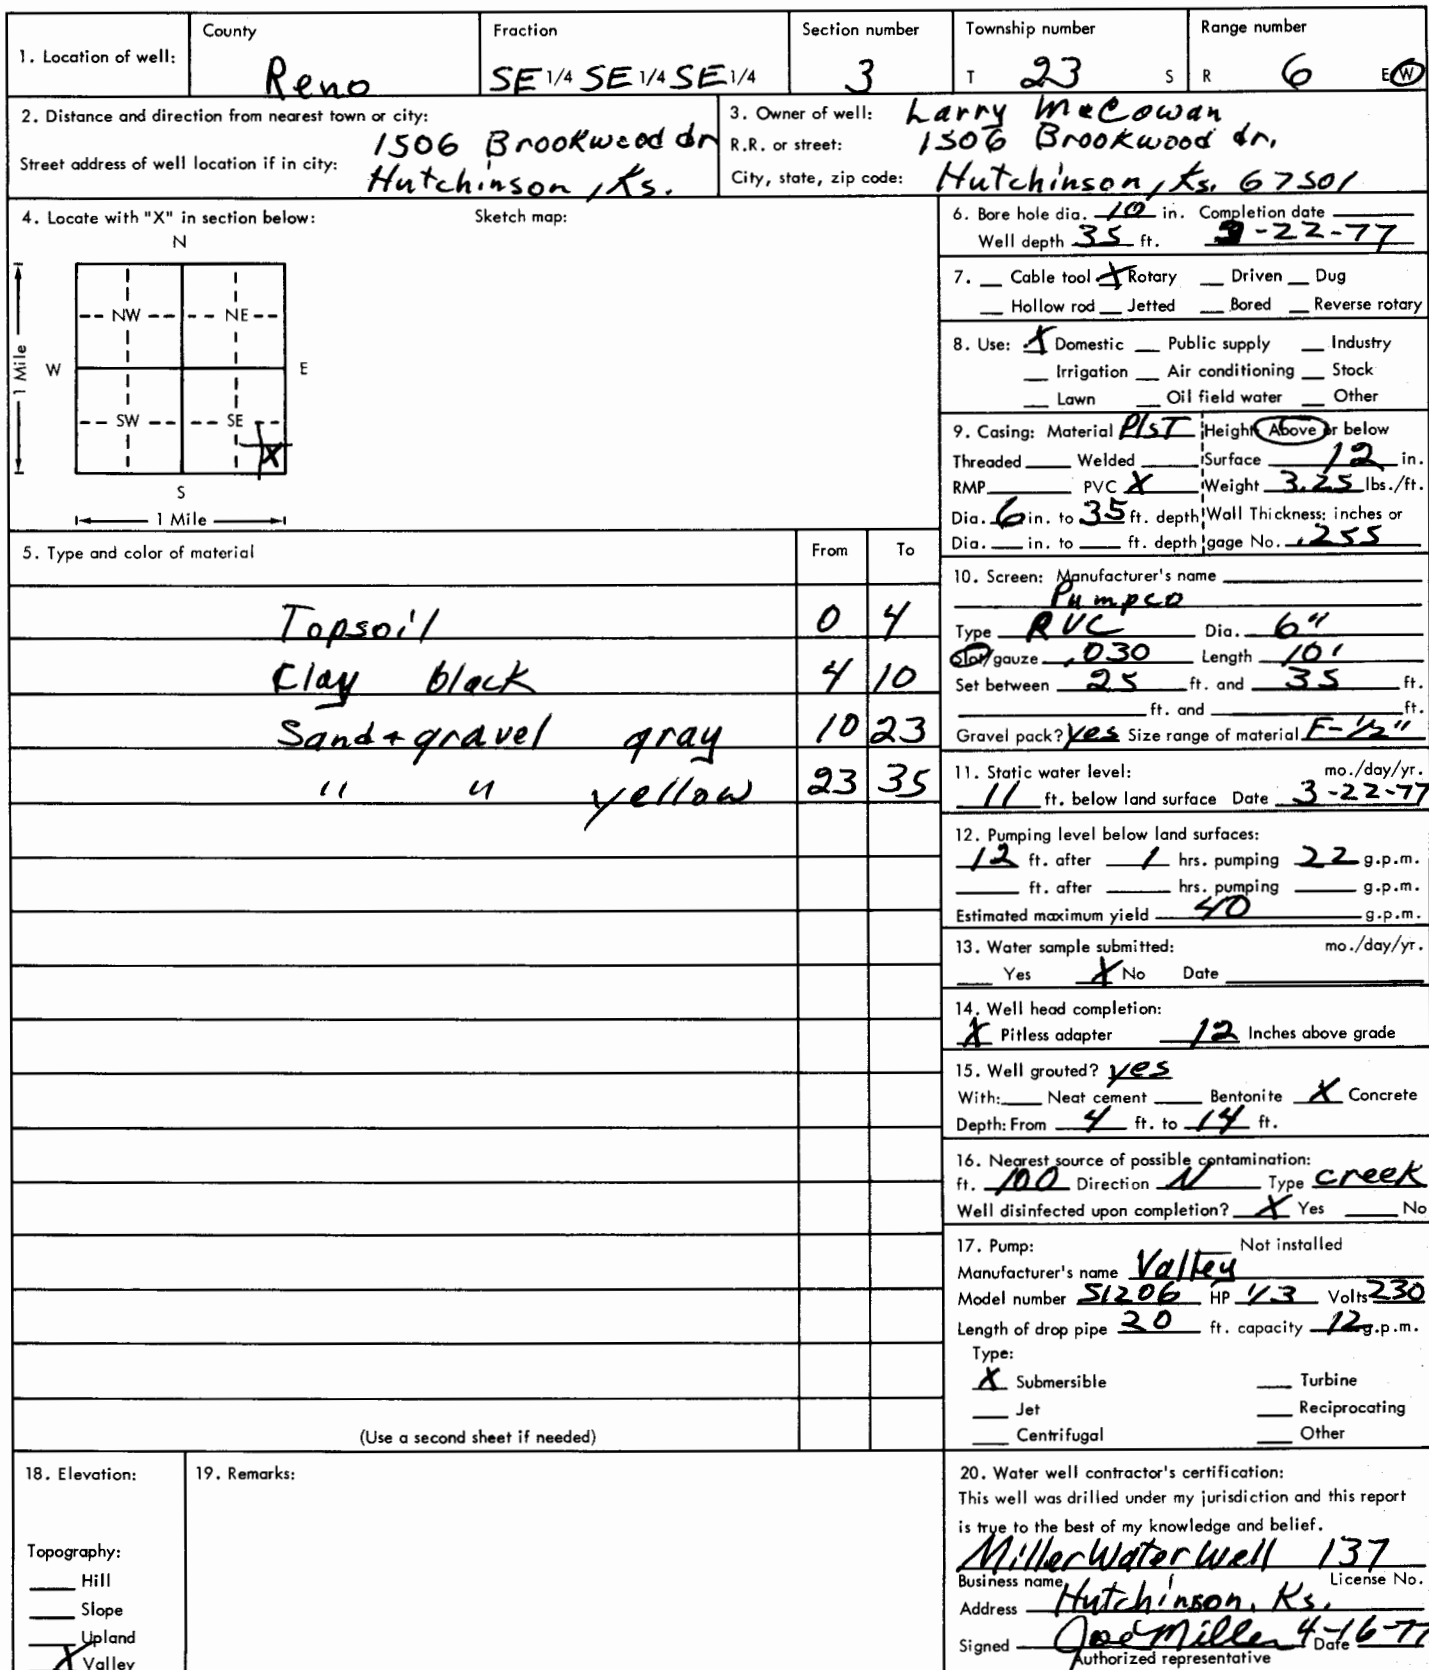 1. Location of well: County Reno Fraction SE 1/4 SE 1/4 SE 1/4 Section number 3 Township number T 23 S Range number R 6 E W
2. Distance and direction from nearest town or city:
1506 Brookwood dr
Street address of well location if in city:
Hutchinson, Ks.
3. Owner of well: Larry McCowan
R.R. or street: 1506 Brookwood dr.
City, state, zip code: Hutchinson, Ks. 67501
4. Locate with "X" in section below: Sketch map:
N
NW NE
W E
1 Mile
SW SE
X
S
1 Mile
5. Type and color of material From To
Topsoil 0 4
Clay black 4 10
Sand + gravel gray 10 23
" " yellow 23 35
(Use a second sheet if needed)
6. Bore hole dia. 10 in. Completion date
Well depth 35 ft. 3-22-77
7. Cable tool X Rotary Driven Dug
Hollow rod Jetted Bored Reverse rotary
8. Use: X Domestic Public supply Industry
Irrigation Air conditioning Stock
Lawn Oil field water Other
9. Casing: Material PlsT Height: Above or below
Threaded Welded Surface 12 in.
RMP PVC X Weight 3.25 lbs./ft.
Dia. 6 in. to 35 ft. depth Wall Thickness: inches or
Dia. in. to ft. depth gage No. .255
10. Screen: Manufacturer's name
Pumpco
Type PVC Dia. 6"
Slot/gauze .030 Length 10'
Set between 25 ft. and 35 ft.
ft. and ft.
Gravel pack? yes Size range of material F-1/2"
11. Static water level: mo./day/yr.
11 ft. below land surface Date 3-22-77
12. Pumping level below land surfaces:
12 ft. after 1 hrs. pumping 22 g.p.m.
ft. after hrs. pumping g.p.m.
Estimated maximum yield 40 g.p.m.
13. Water sample submitted: mo./day/yr.
Yes X No Date
14. Well head completion:
X Pitless adapter 12 Inches above grade
15. Well grouted? yes
With: Neat cement Bentonite X Concrete
Depth: From 4 ft. to 14 ft.
16. Nearest source of possible contamination:
ft. 100 Direction N Type creek
Well disinfected upon completion? X Yes No
17. Pump: Not installed
Manufacturer's name Valley
Model number S1206 HP 1/3 Volts 230
Length of drop pipe 20 ft. capacity 12 g.p.m.
Type:
X Submersible Turbine
Jet Reciprocating
Centrifugal Other
18. Elevation:
Topography:
Hill
Slope
Upland
X Valley
19. Remarks:
20. Water well contractor's certification:
This well was drilled under my jurisdiction and this report
is true to the best of my knowledge and belief.
Miller Water Well 137
Business name License No.
Address Hutchinson, Ks.
Signed Joe Miller Date 4-16-77
Authorized representative